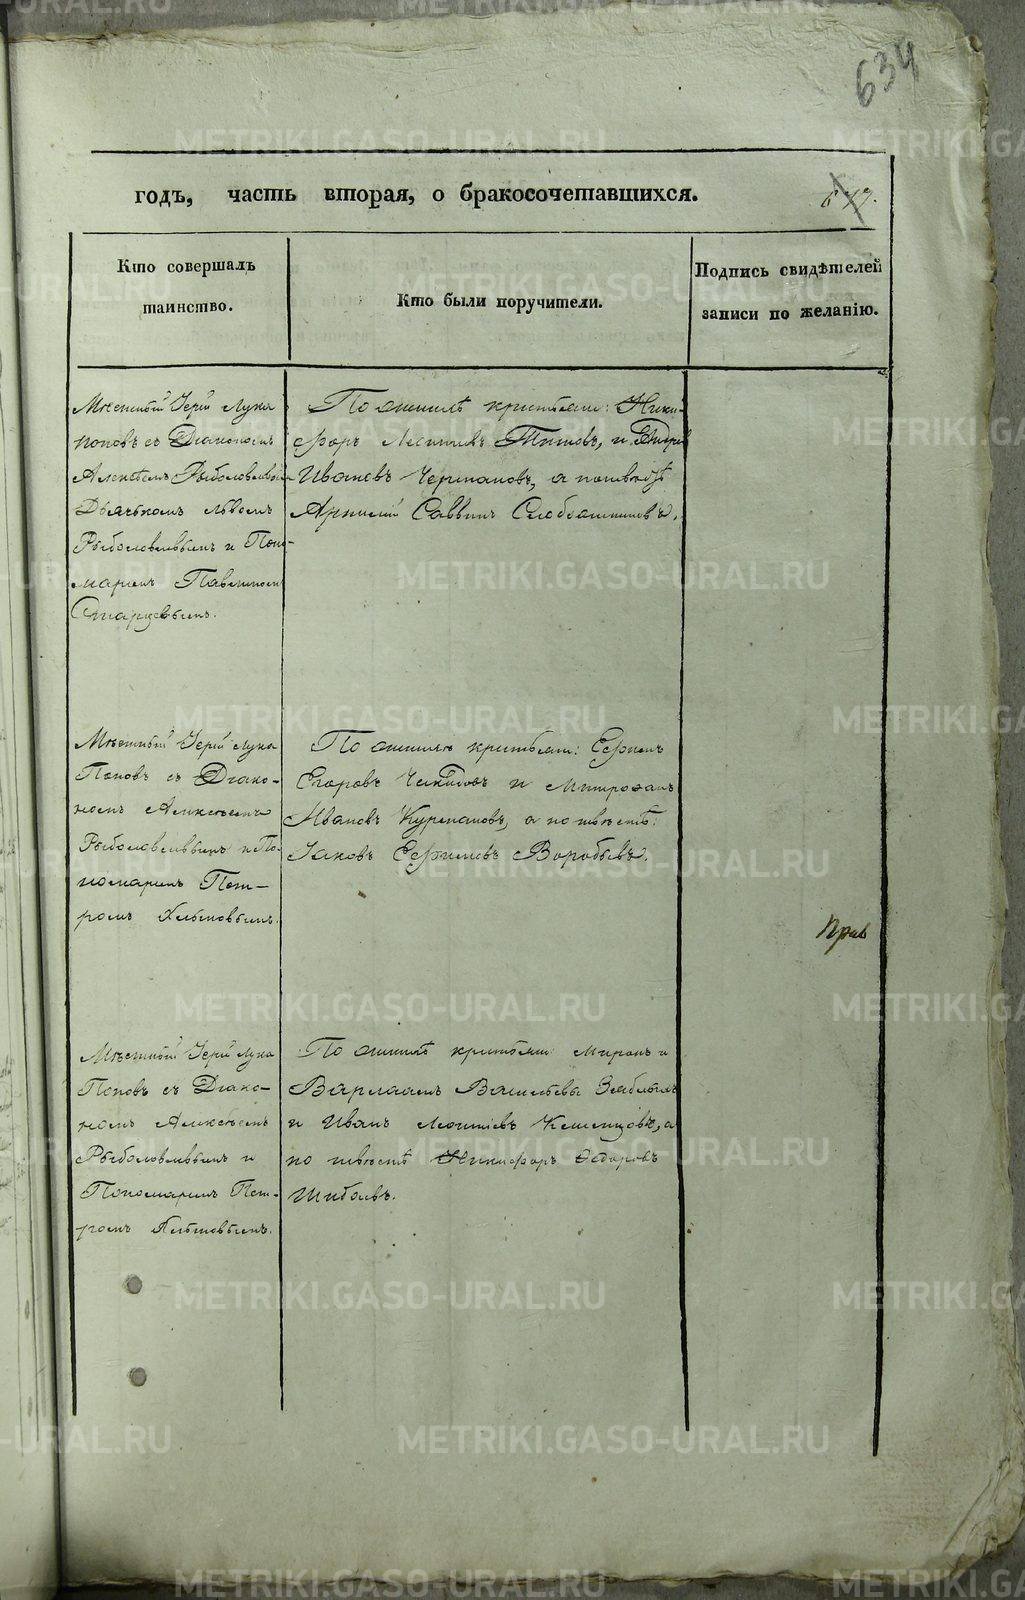 634
годъ, часть вторая, о бракосочетавшихся.
647.
Кто совершалъ
таинство.
Кто были поручители.
Подпись свидѣтелей
записи по желанію.
Мѣстный Іерей Лука
Поповъ съ Діакономъ
Алексѣемъ Рыболовлевымъ
Дьячкомъ Львомъ
Рыболовлевымъ и Поно-
маремъ Павлиномъ
Старцевымъ.
По женихѣ крестьяне: Ники-
форъ Титовъ, и Андрей
Ивановъ Черепановъ, а по невѣстѣ
Арсеній Саввинъ Слободчиковъ.
Мѣстный Іерей Лука
Поповъ съ Діако-
номъ Алексѣемъ
Рыболовлевымъ и По-
номаремъ Пет-
ромъ Хлыновымъ.
По женихѣ крестьяне: Ефремъ
Егоровъ и Митрофанъ
Ивановъ Курепановъ, а по невѣстѣ:
Іаковъ Ефимовъ Воробьевъ.
Прав
Мѣстный Іерей Лука
Поповъ съ Діако-
номъ Алексѣемъ
Рыболовлевымъ и
Пономаремъ Пет-
ромъ Хлыновымъ.
По женихѣ крестьяне Миронъ и
Варлаамъ Васильевы
и Иванъ а
по невѣстѣ Никифоръ Ѳедоровъ
Шибаевъ.
METRIKI.GASO-URAL.RU